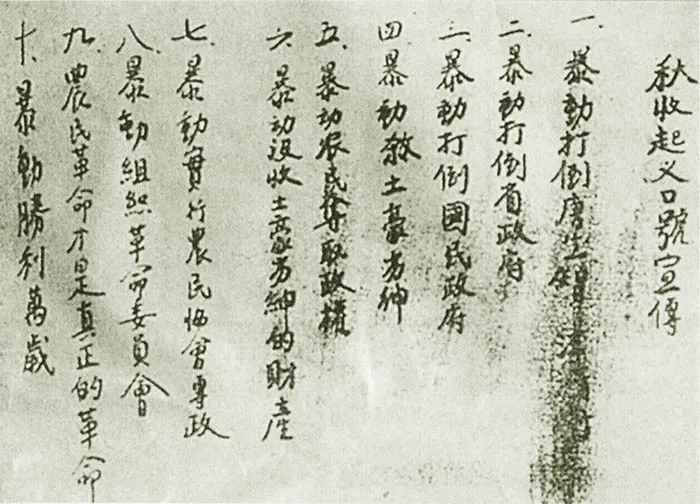 秋收起义口號宣傳
一、暴動打倒唐生智
二、暴動打倒省政府
三、暴動打倒國民政府
四暴動殺土豪劣紳
五、暴动农民奪取政權
六、暴动没收土豪劣紳的財產
七、暴動實行農民協會專政
八暴動組织革命委員會
九、農民革命才是真正的革命
十、暴動勝利萬歲